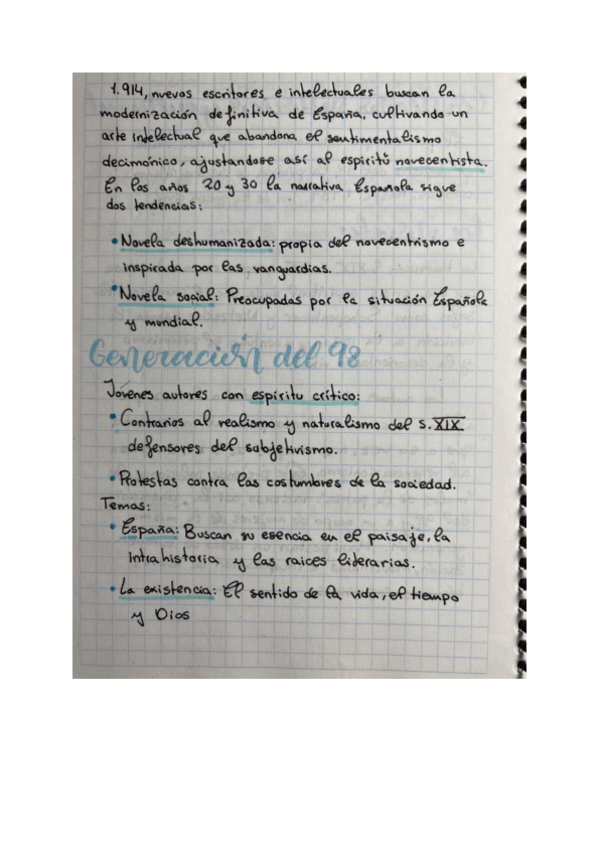 1.914, nuevos escritores e intelectuales buscan la
modernización definitiva de España, cultivando un
arte intelectual que abandona el sentimentalismo
decimónico, ajustandose así al espiritú novecentista.
En los años 20 y 30 la narrativa Española sigue
dos tendencias:
• Novela deshumanizada: propia del novecentrismo e
inspirada por las vanguardias.
• Novela social: Preocupadas por la situación Española
y mundial.
Generación del 98
Jóvenes autores con espiritu crítico:
• Contrarios al realismo y naturalismo del s. XIX
defensores del subjetivismo.
• Protestas contra las costumbres de la sociedad.
Temas:
• España: Buscan su esencia en el paisaje, la
intrahistoria y las raices literarias.
• La existencia: El sentido de la vida, el tiempo
y Dios